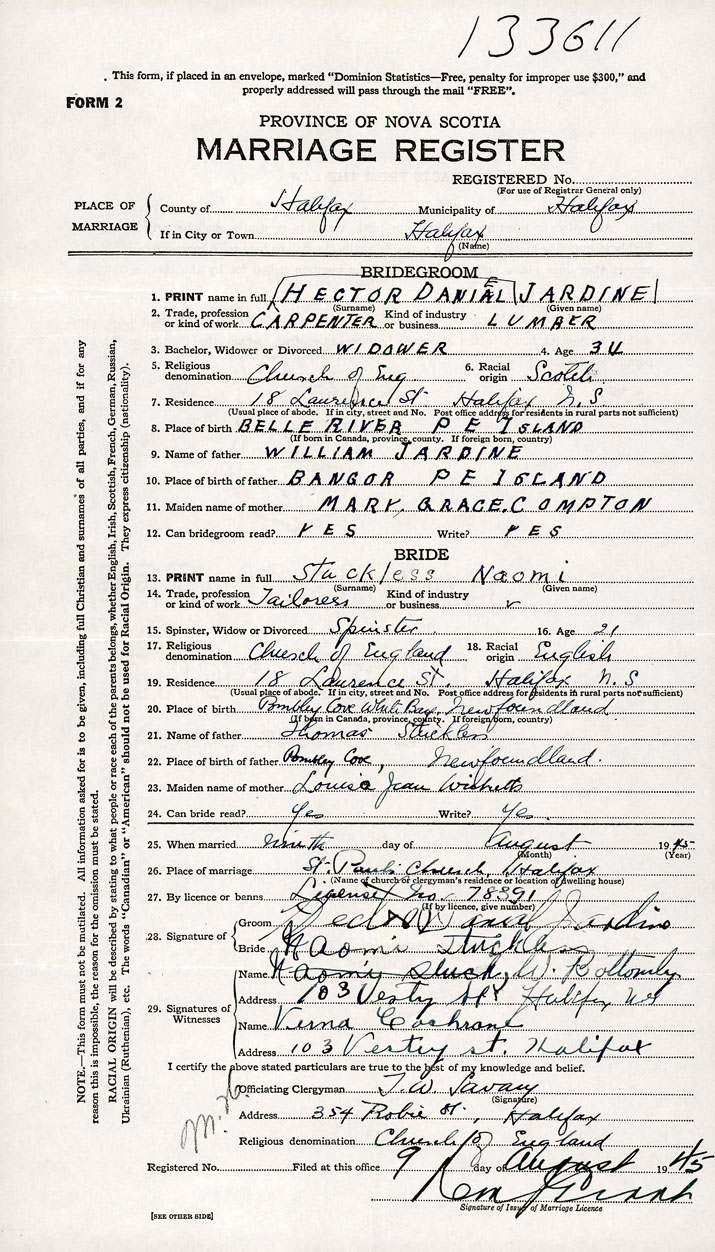 133611
. This form, if placed in an envelope, marked "Dominion Statistics—Free, penalty for improper use $300," and
properly addressed will pass through the mail "FREE".
FORM 2
PROVINCE OF NOVA SCOTIA
MARRIAGE REGISTER
REGISTERED No.
(For use of Registrar General only)
PLACE OF MARRIAGE
County of Halifax Municipality of Halifax
If in City or Town Halifax
(Name)
BRIDEGROOM
1. PRINT name in full HECTOR DANIAL JARDINE
(Surname) (Given name)
2. Trade, profession or kind of work CARPENTER Kind of industry or business LUMBER
3. Bachelor, Widower or Divorced WIDOWER 4. Age 34
5. Religious denomination Church of Eng 6. Racial origin Scotch
7. Residence 18 Laurence St Halifax N.S
(Usual place of abode. If in city, street and No. Post office address for residents in rural parts not sufficient)
8. Place of birth BELLE RIVER P E ISLAND
(If born in Canada, province, county. If foreign born, country)
9. Name of father WILLIAM JARDINE
10. Place of birth of father BANGOR P E ISLAND
11. Maiden name of mother MARY. GRACE. COMPTON
12. Can bridegroom read? YES Write? YES
BRIDE
13. PRINT name in full Stuckless Naomi
(Surname) (Given name)
14. Trade, profession or kind of work Tailoress Kind of industry or business
15. Spinster, Widow or Divorced Spinster 16. Age 21
17. Religious denomination Church of England 18. Racial origin English
19. Residence 18 Laurence St. Halifax N.S
(Usual place of abode. If in city, street and No. Post office address for residents in rural parts not sufficient)
20. Place of birth Cove White Bay, Newfoundland
(If born in Canada, province, county. If foreign born, country)
21. Name of father Thomas
22. Place of birth of father Cove, Newfoundland.
23. Maiden name of mother Louise Jean
24. Can bride read? Yes Write? Yes.
25. When married ninth day of August 1945
(Month) (Year)
26. Place of marriage St. Paul's Church, Halifax
(Name of church or clergyman's residence or location of dwelling house)
27. By licence or banns License No. 78391
(If by licence, give number)
28. Signature of
Groom Daniel Jardine
Bride Naomi Stuckless
29. Signatures of Witnesses
Name W. Bottomly
Address 103 St Halifax NS
Name Verna Cochrane
Address 103 St. Halifax
I certify the above stated particulars are true to the best of my knowledge and belief.
Officiating Clergyman T. W. Savary
(Signature)
Address 354 Robie St., Halifax
Religious denomination Church of England
Registered No. Filed at this office 9 day of August 1945
Signature of Issuer of Marriage Licence
[SEE OTHER SIDE]
NOTE.—This form must not be mutilated. All information asked for is to be given, including full Christian and surnames of all parties, and if for any
reason this is impossible, the reason for the omission must be stated.
RACIAL ORIGIN will be described by stating to what people or race each of the parents belongs, whether English, Irish, Scottish, French, German, Russian,
Ukrainian (Ruthenian), etc. The words "Canadian" or "American" should not be used for Racial Origin. They express citizenship (nationality).